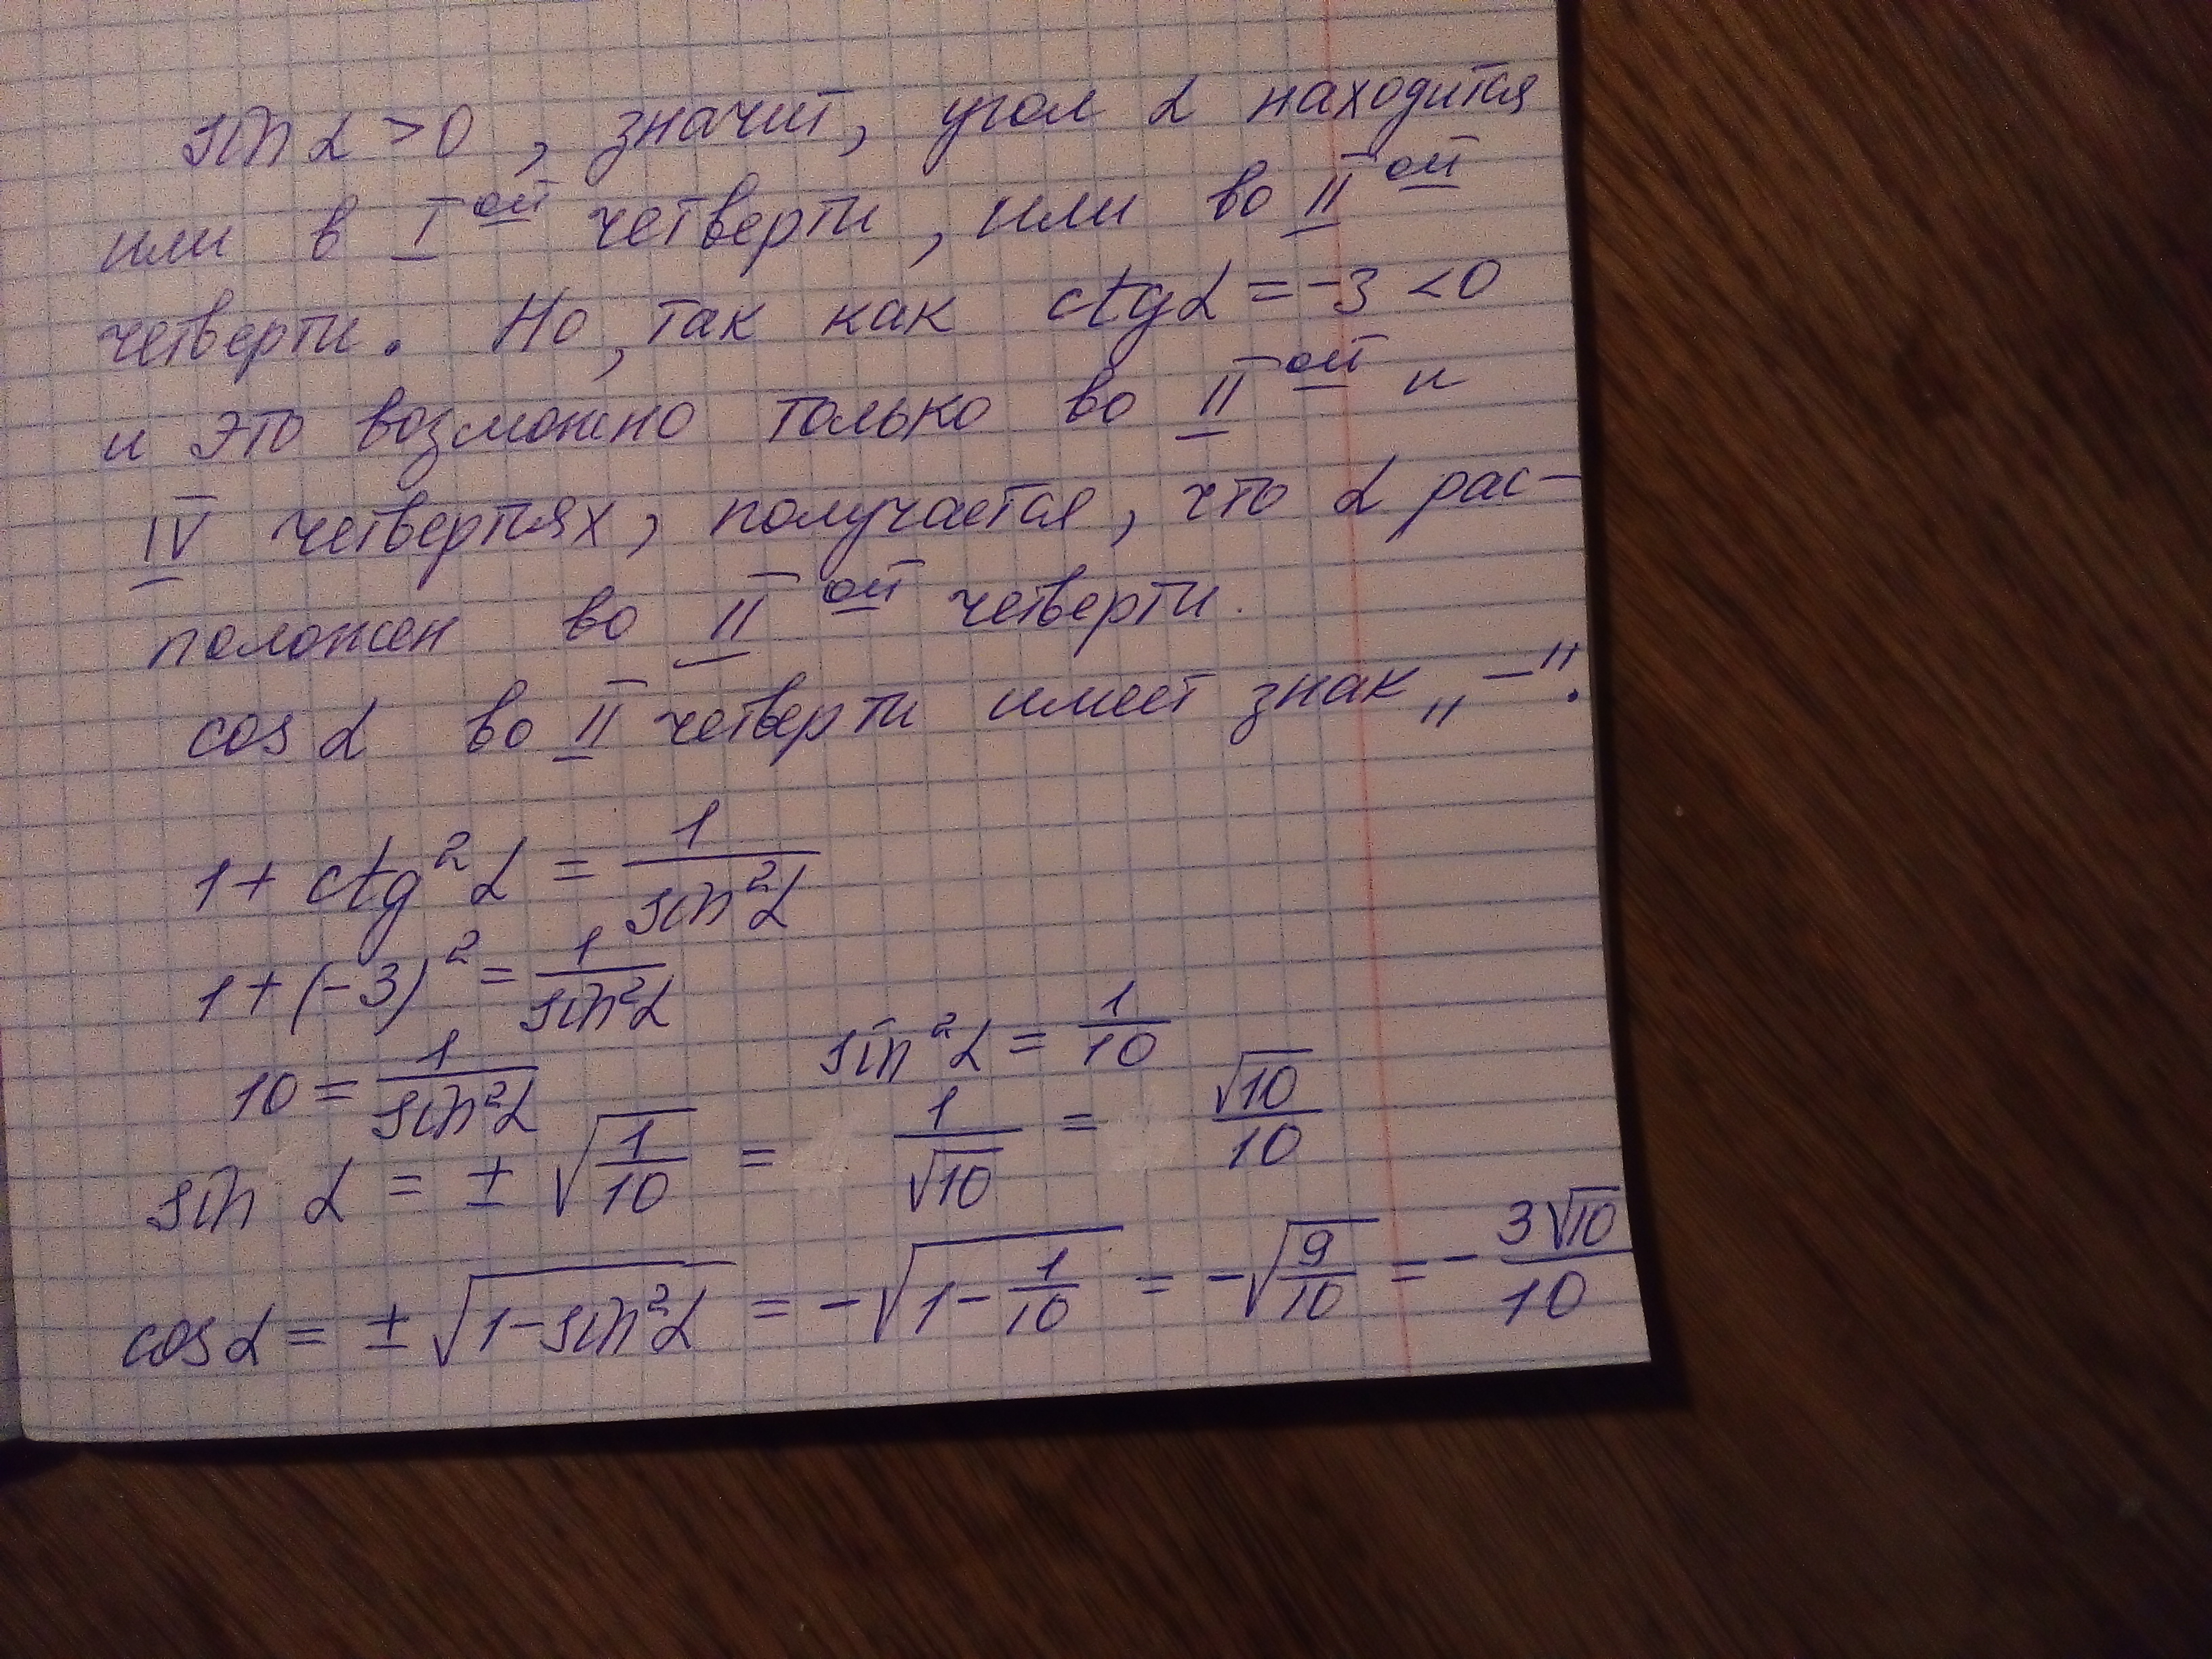 sin α > 0, значит, угол α находится
или в I ой четверти, или во II ой
четверти. Но, так как ctg α = -3 < 0
и это возможно только во II ой и
IV четвертях, получается, что α рас-
положен во II ой четверти.
cos α во II четверти имеет знак „−".
1 + ctg²α = 1/sin²α
1 + (-3)² = 1/sin²α
10 = 1/sin²α sin²α = 1/10
sin α = ± √(1/10) = 1/√10 = √10/10
cos α = ± √(1-sin²α) = -√(1-1/10) = -√(9/10) = - 3√10/10